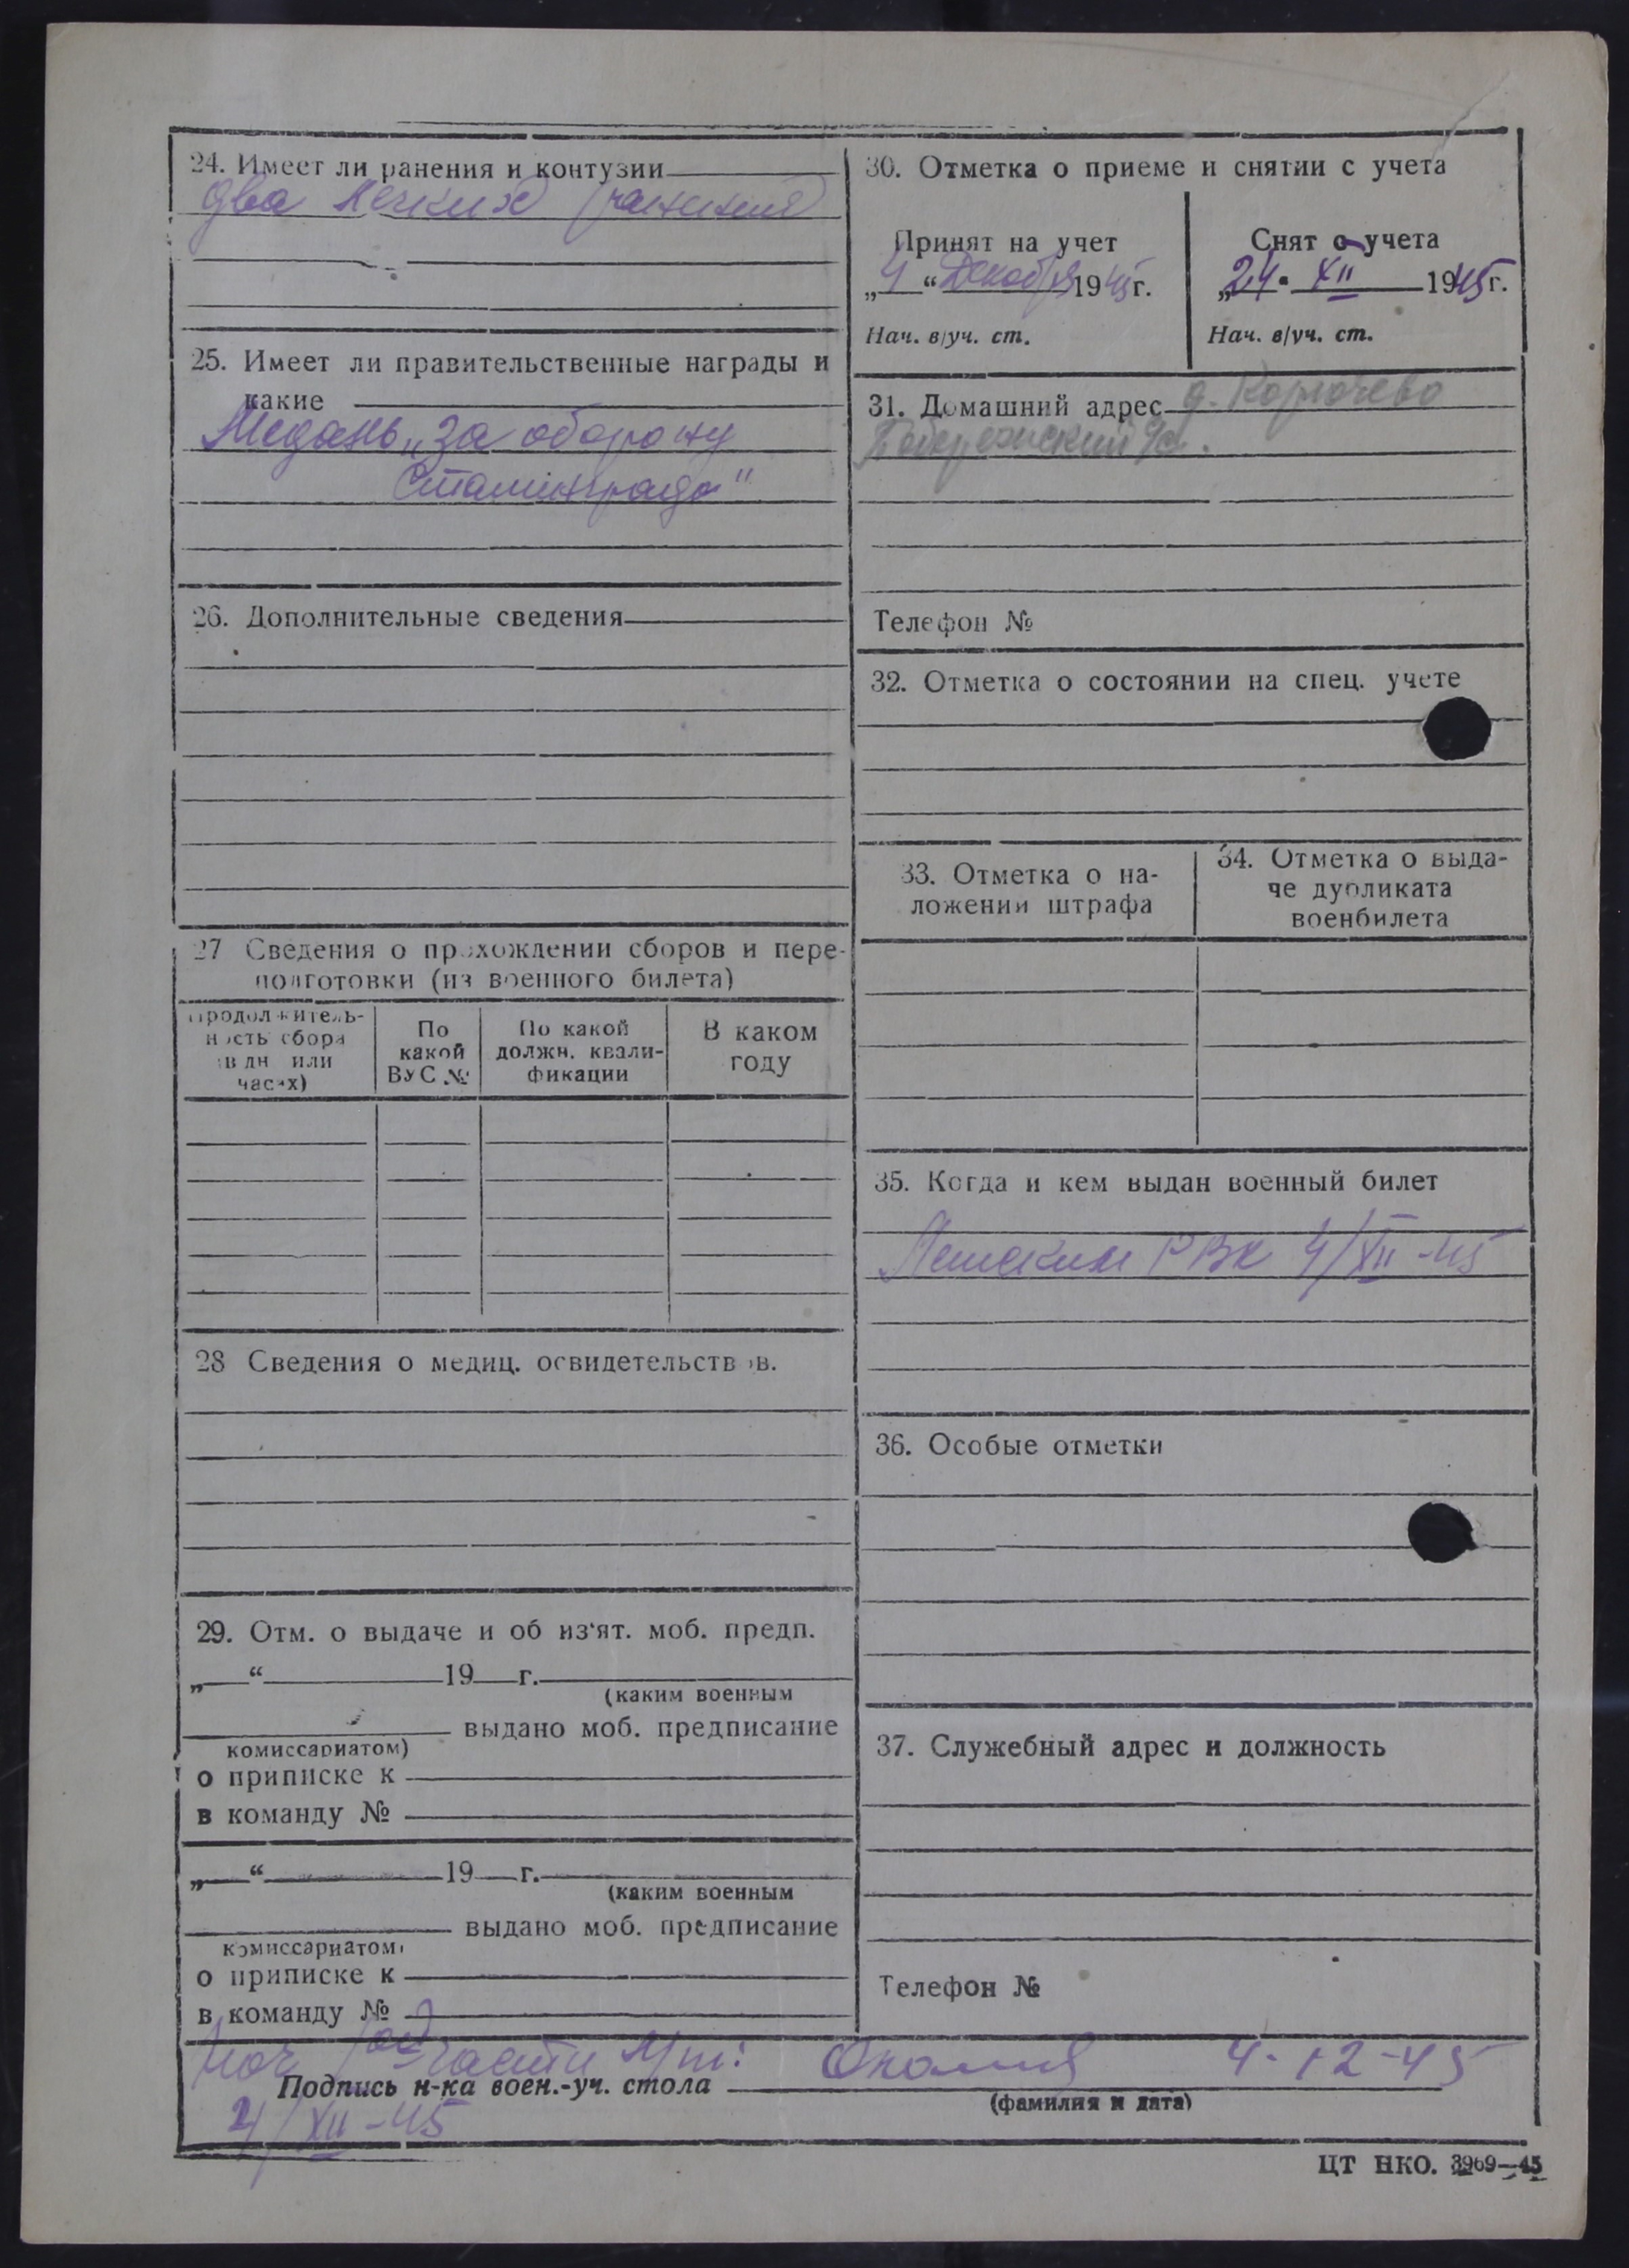 24. Имеет ли ранения и контузии
два легких ранения
25. Имеет ли правительственные награды и
какие
Медаль „За оборону
Сталинграда"
26. Дополнительные сведения
27 Сведения о прохождении сборов и пере-
подготовки (из военного билета)
Продолжитель-
ность сбора
(в дн или
часах)
По
какой
ВУС №
По какой
должн. квали-
фикации
В каком
году
28 Сведения о медиц. освидетельствов.
29. Отм. о выдаче и об из'ят. моб. предп.
„ “ 19 г.
(каким военным
выдано моб. предписание
комиссариатом)
о приписке к
в команду №
„ “ 19 г.
(каким военным
выдано моб. предписание
комиссариатом)
о приписке к
в команду №
30. Отметка о приеме и снятии с учета
Принят на учет
„4“ Декабря 1945 г.
Нач. в/уч. ст.
Снят с учета
„24" XII 1945 г.
Нач. в/уч. ст.
31. Домашний адрес д.
Телефон №
32. Отметка о состоянии на спец. учете
33. Отметка о на-
ложении штрафа
34. Отметка о выда-
че дубликата
военбилета
35. Когда и кем выдан военный билет
РВК 4/XII-45
36. Особые отметки
37. Служебный адрес и должность
Телефон №
Нач части 4-12-45
Подпись н-ка воен.-уч. стола
(фамилия и дата)
4/XII-45
ЦТ НКО. 3969—45